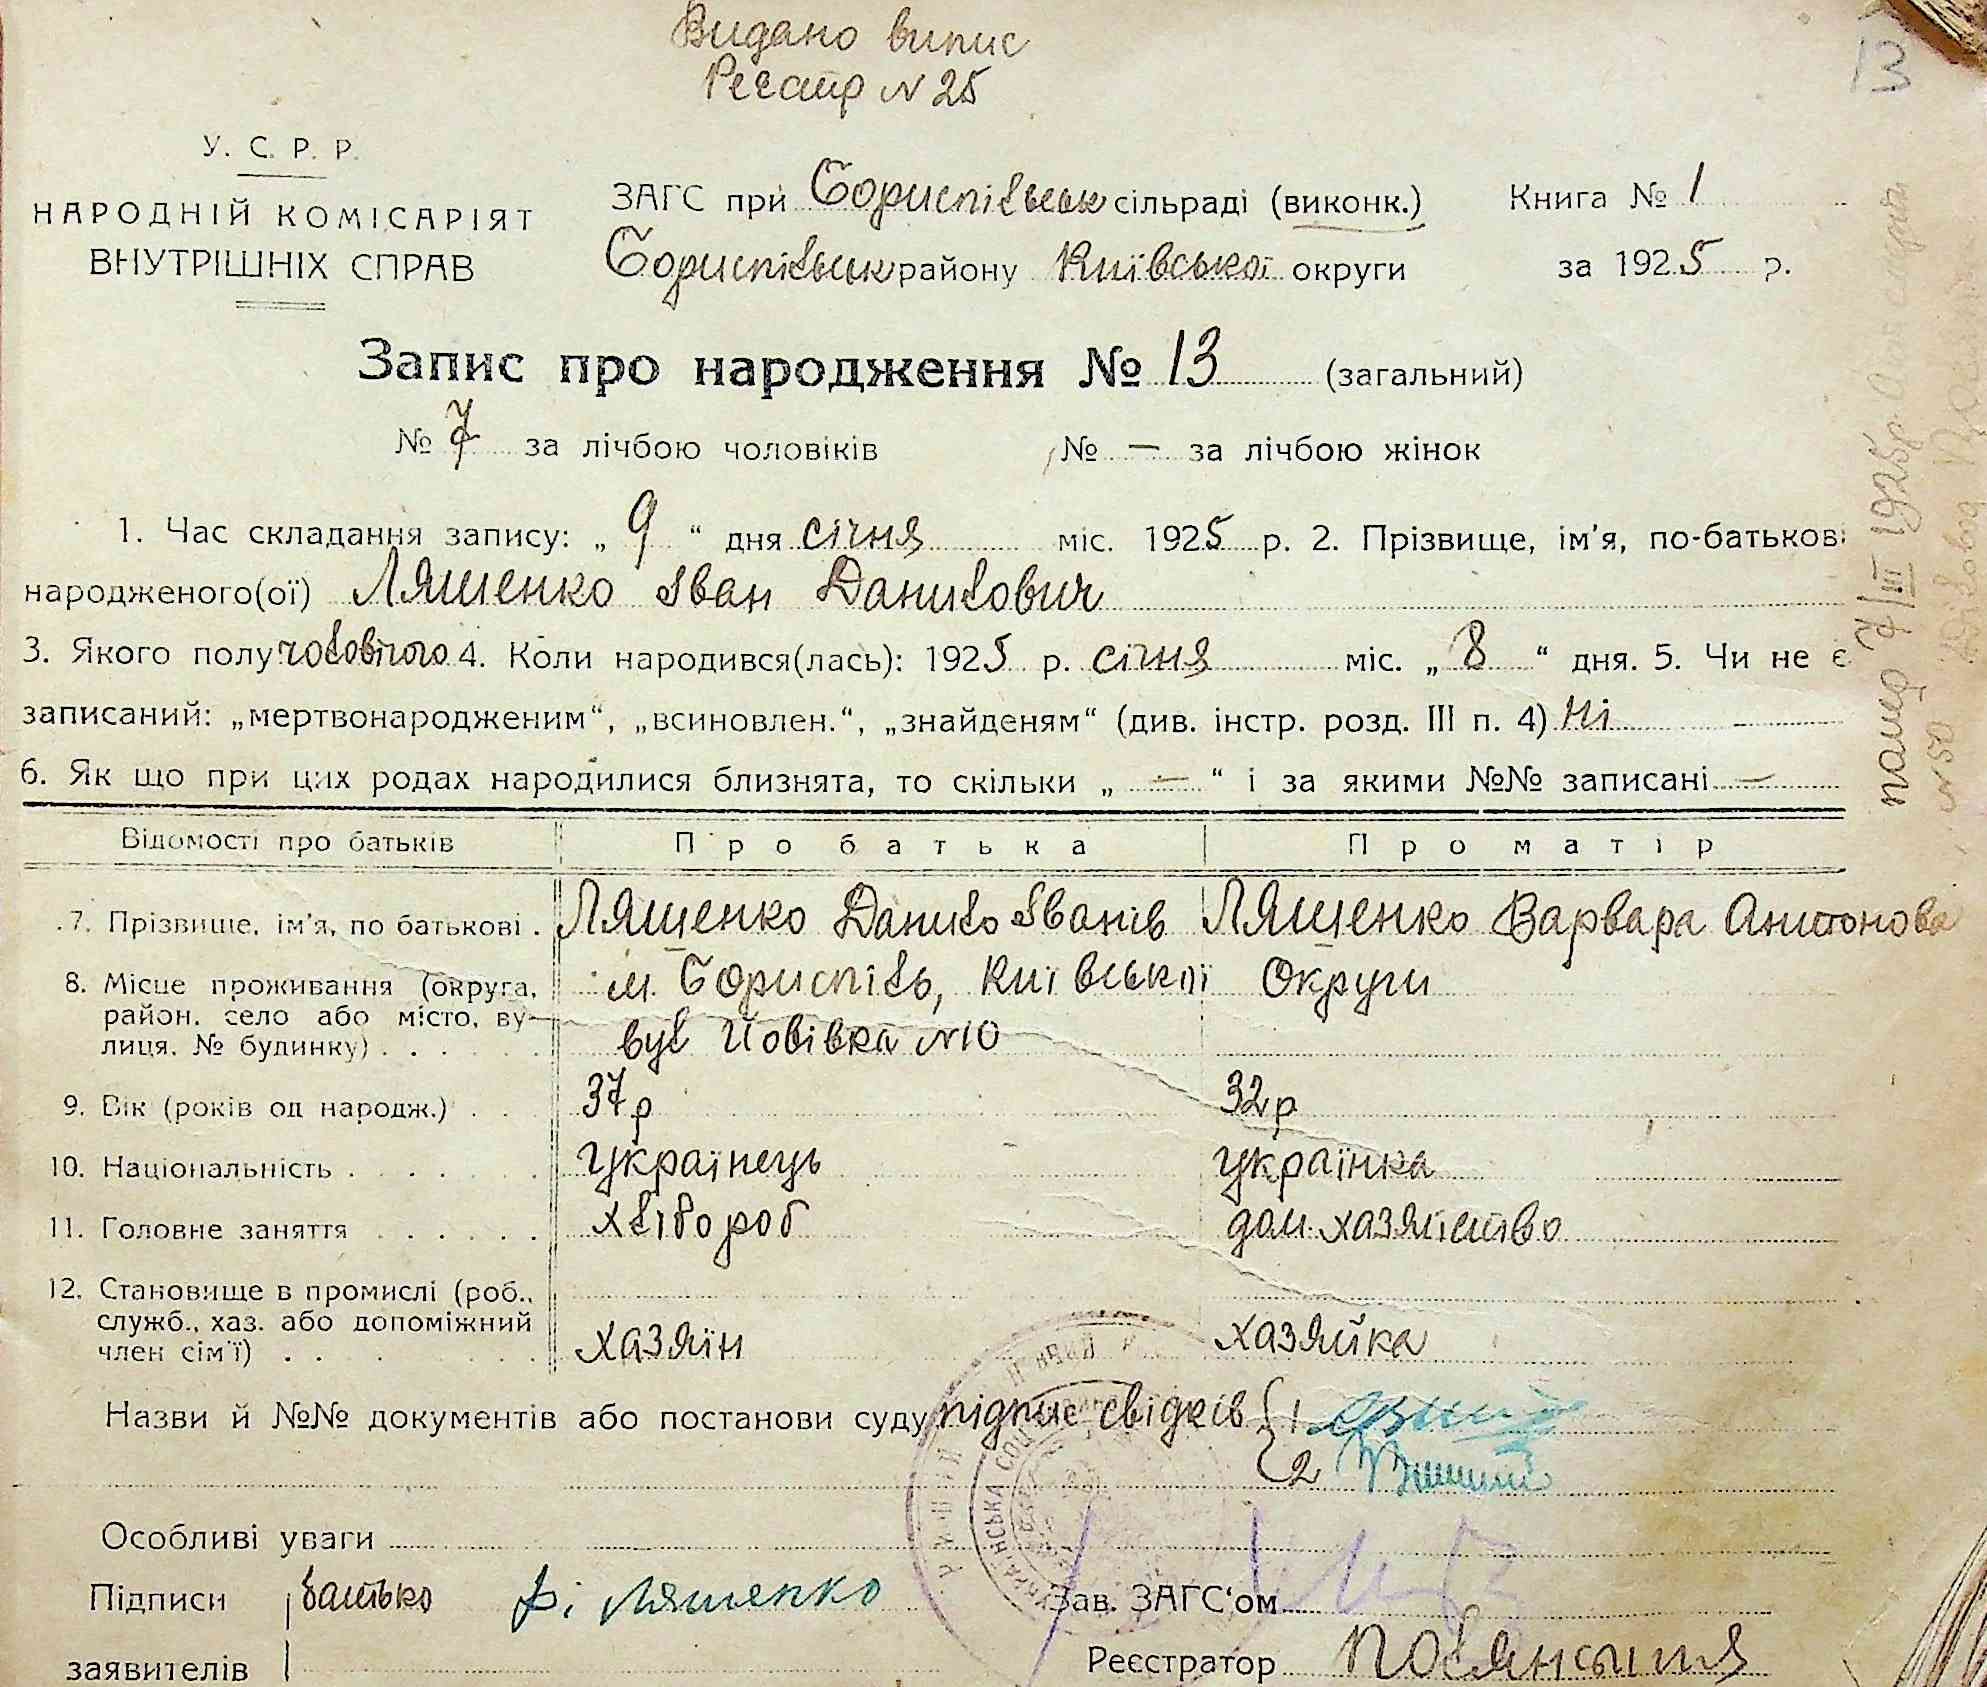 Видано випис
Реєстр N 25
13
У. С. Р. Р.
НАРОДНІЙ КОМІСАРІЯТ
ВНУТРІШНІХ СПРАВ
ЗАГС при Бориспільськ сільраді (виконк.)
Книга № 1
Бориспільськ району Київської округи
за 1925 р.
Запис про народження № 13 (загальний)
№ 7 за лічбою чоловіків № — за лічбою жінок
1. Час складання запису: „ 9 “ дня січня міс. 1925 р. 2. Прізвище, ім'я, по-батькові
народженого(ої) Ляшенко Іван Данилович
3. Якого полу чоловічого 4. Коли народився(лась): 1925 р. січня міс. „ 8 “ дня. 5. Чи не є
записаний: „мертвонародженим“, „всиновлен.“, „знайденям“ (див. інстр. розд. III п. 4) Ні
6. Як що при цих родах народилися близнята, то скільки „ — “ і за якими №№ записані —
Відомості про батьків Про батька Про матір
7. Прізвище, ім'я, по батькові . Ляшенко Данило Іванів Ляшенко Варвара Антонова
8. Місце проживання (округа, м. Бориспіль, Київської Округи
район, село або місто, ву-
лиця, № будинку) . . . . . . вул N 10
9. Вік (років од народж.) . . . 37 р 32 р
10. Національність . . . . . . українець українка
11. Головне заняття . . . . . . хлібороб дом. хазяйство
12. Становище в промислі (роб.,
служб., хаз. або допоміжний
член сім'ї) . . . . . . хазяїн хазяйка
Назви й №№ документів або постанови суду підпис свідків { 1.
2
Особливі уваги
Підписи батько Ляшенко
Зав. ЗАГС'ом
заявителів
Реєстратор
помер 7/III 1925р
N 50